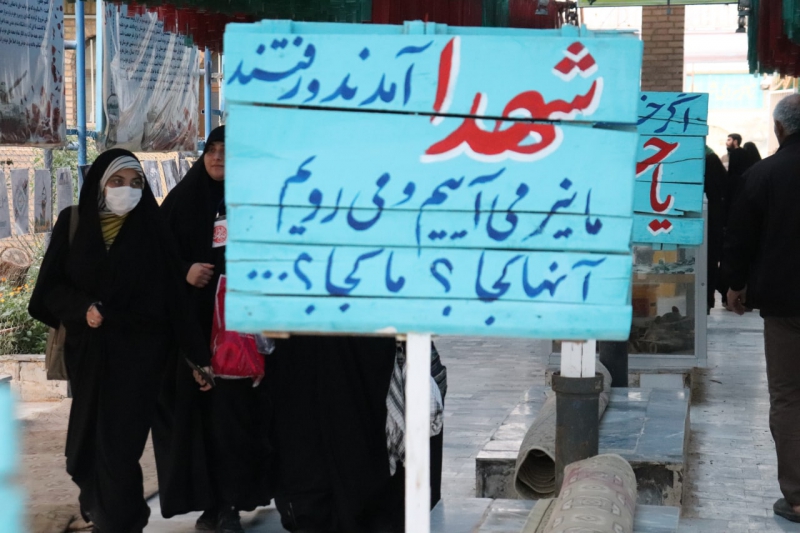 شهدا آمدند و رفتند
ما نیز می آییم و می رویم
آنها کجا ؟ ما کجا ؟ ...
اگر
یا